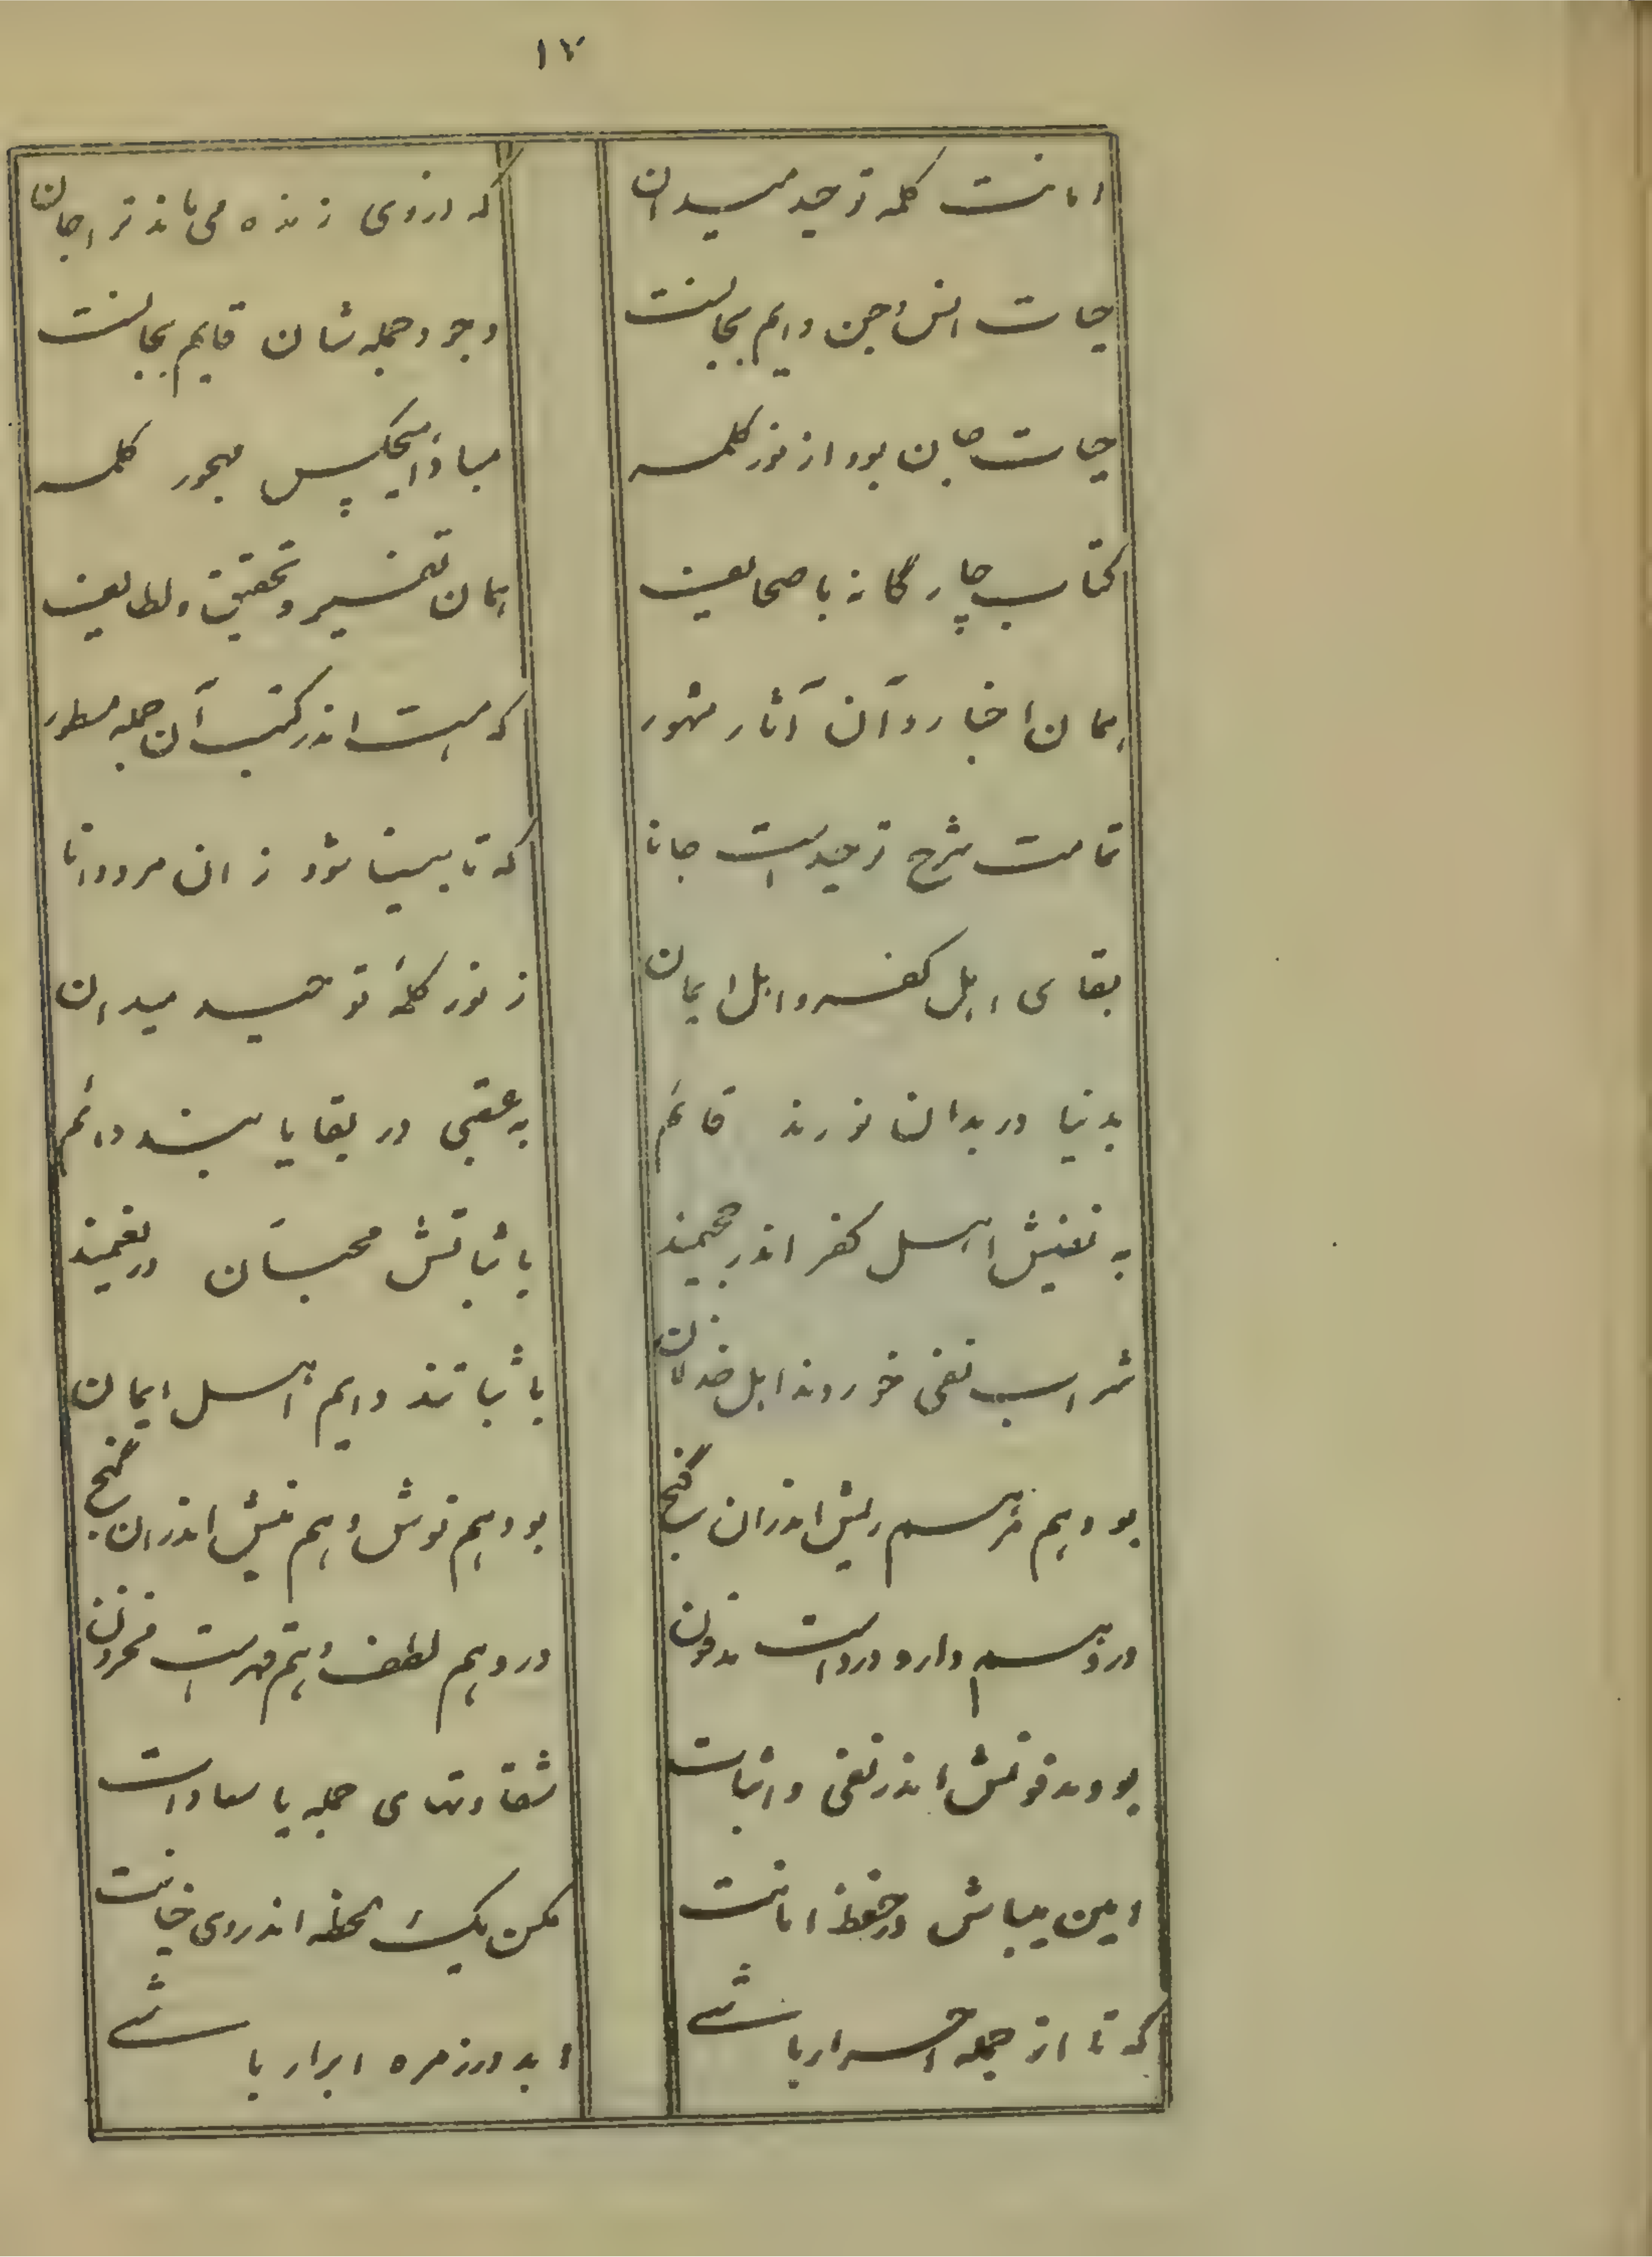 ۱۷
امانت کلمه توحید میدان
که در وی زنده می‌ماند ترا جان
حیات انس و جن دایم بجانست
وجود جمله شان قایم بجانست
حیات جان بود از نور کلمه
مبادا هیچکس مهجور کلمه
کتاب چارگانه با صحایف
همان تفسیر و تحقیق و لطایف
همان اخبار و آن آثار مشهور
که هست اندر کتب آن جمله مسطور
تمامت شرح توحیدست جانا
که تا بینا شود زان مرد دانا
بقای اهل کفر و اهل ایمان
ز نور کلمهٔ توحید میدان
بدنیا در بدان نورند قائم
به عقبی در بقا یابند دائم
به نفیش اهل کفر اندر جحیمند
باثباتش محبان در نعیمند
شراب نفی خوردند اهل خذلان
باثباتند دایم اهل ایمان
بود هم مرهم ریش اندران گنج
بود هم نوش و هم نیش اندران گنج
درو هم دارو و دردست مدفون
درو هم لطف و هم قهرست مخزون
بود مدفونش اندر نفی و اثبات
شقاوتهای جمله با سعادات
امین میباش در حفظ امانت
مکن یک لحظه اندر وی خیانت
که تا از جمله احرار باشے
ابد در زمره ابرار باشے